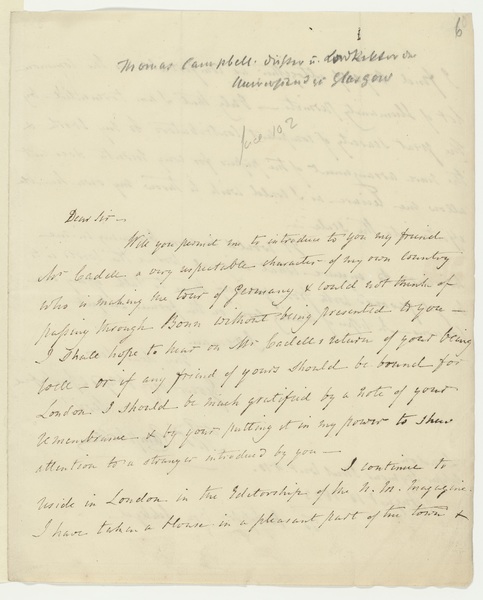 6
Thomas Campbell. Dichter u. Lord Rektor der
Universität Glasgow
Dear Sir—
Will you permit me to introduce to you my friend
Mr Cadell a very respectable character of my own country
who is making the tour of Germany & could not think of
passing through Bonn without being presented to you —
I shall hope to hear on Mr Cadell's return of your being
well – or if any friend of yours should be bound for
London I should be much gratified by a note of your
remembrance – & by your putting it in my power to shew
attention to a stranger introduced by you —
I continue to
reside in London in the Editorship of the N. M. Magazine.
I have taken a House in a pleasant part of the town &